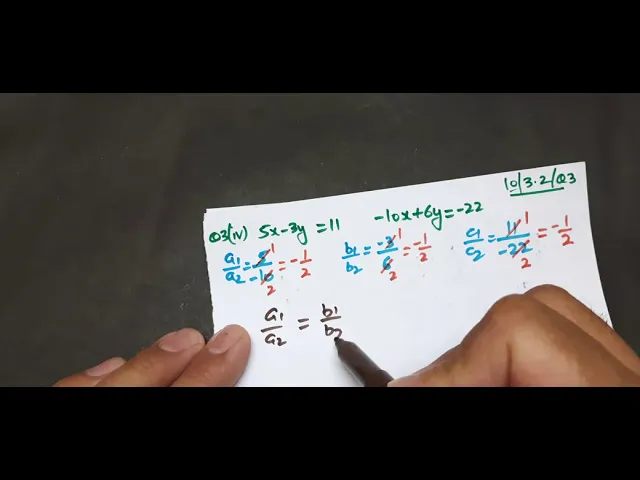 10/3.2/Q3
Q3(iv) 5x-3y=11 -10x+6y=-22
a1/a2 = 5/-10 = -1/2 b1/b2 = -3/6 = -1/2 a1/a2 = 11/-22 = -1/2
a1/a2 = b1/b2